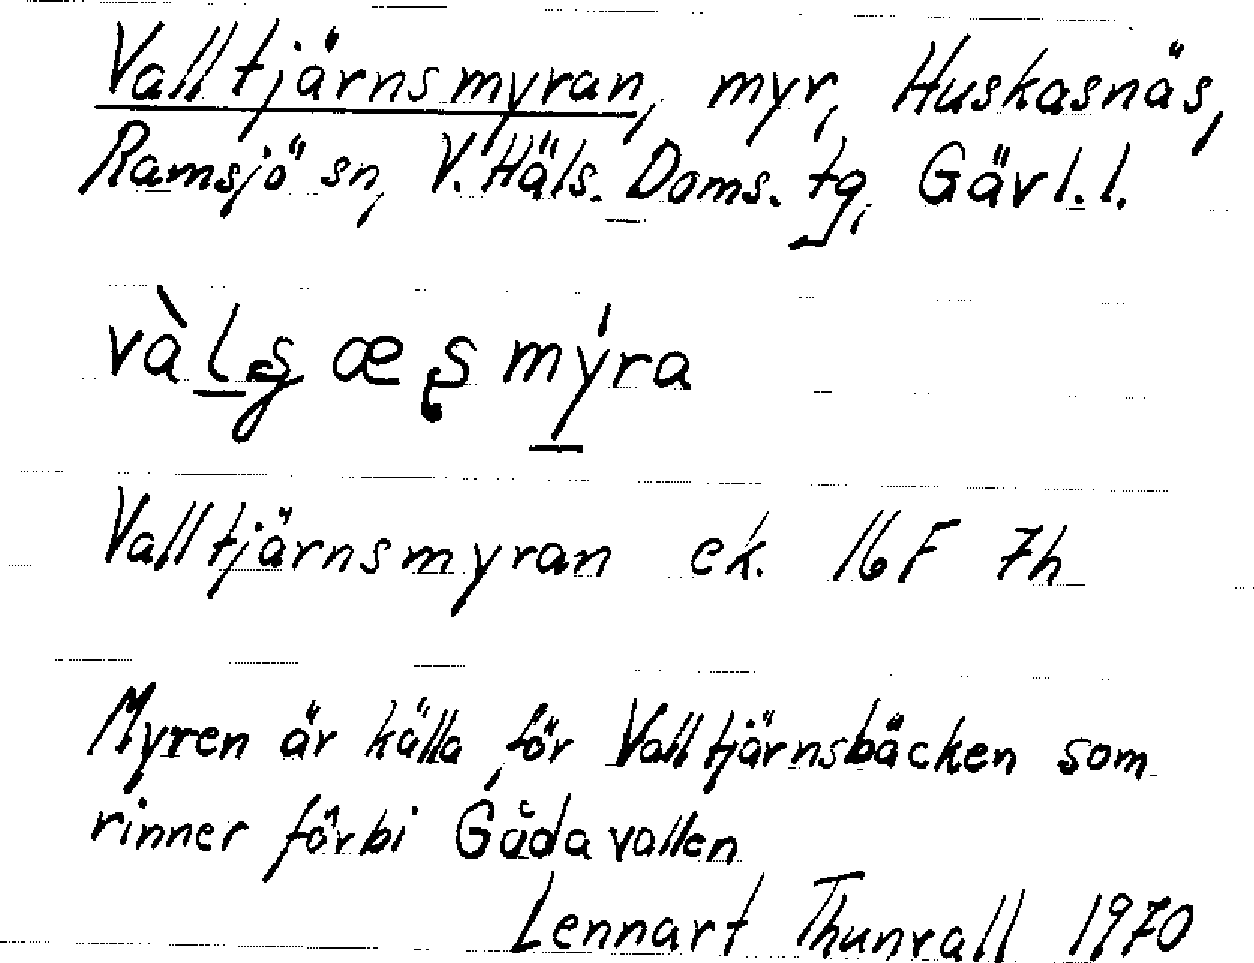 Valltjärnsmyran, myr, Huskasnäs,
Ramsjö sn, V. Häls. Doms. tg, Gävl. l.
myra
Valltjärnsmyran ek. 16F 7h
Myren är källa för Valltjärnsbäcken som
rinner förbi Gåda vallen
Lennart Thunvall 1970